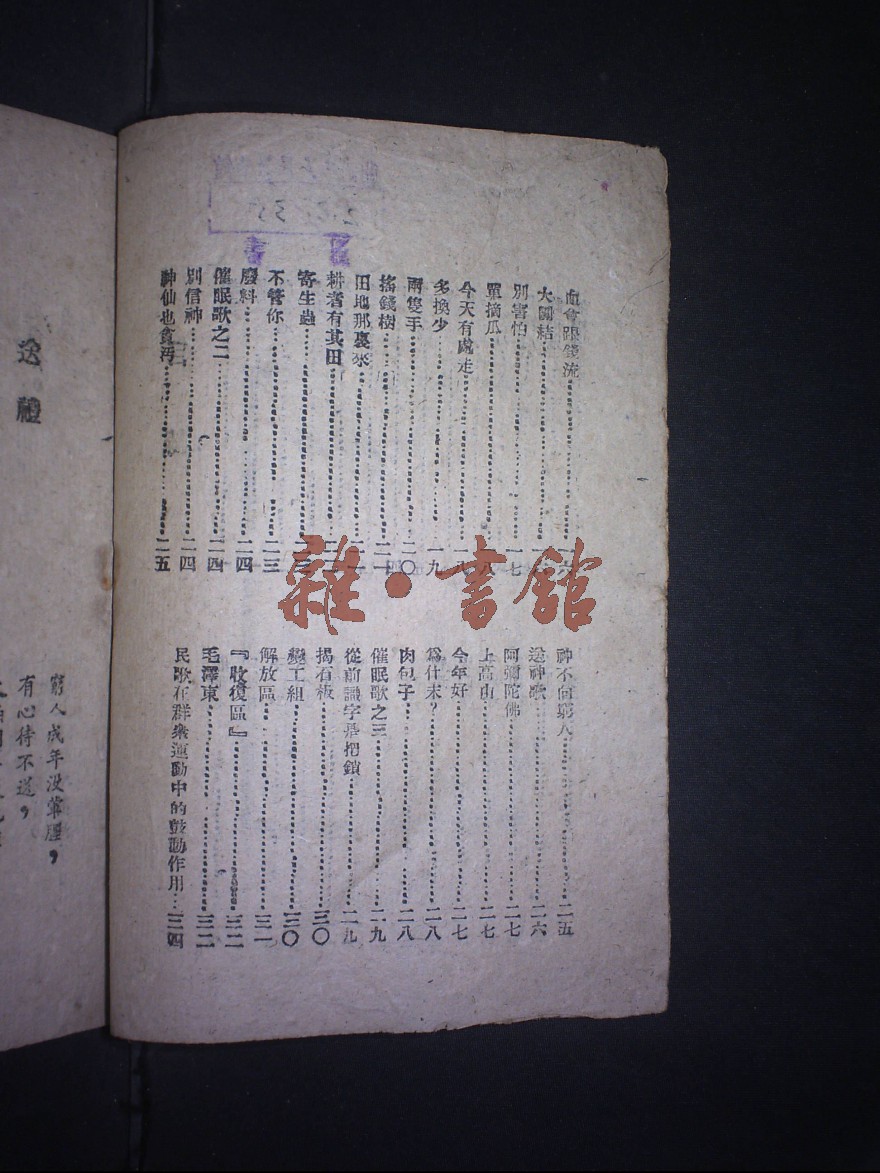 血會跟錢流……一六
大團結……一六
別害怕……一七
單摘瓜……一八
今天有處走……一八
多換少……一九
兩隻手……二〇
搖錢樹……二一
田地那裏來……二一
耕者有其田……二二
寄生蟲……二三
不管你……二三
廢料……二四
催眠歌之二……二四
別信神……二四
神仙也貪污……二五
神不向窮人……二五
送神歌……二六
阿彌陀佛……二七
上高山……二七
今年好……二七
爲什末？……二八
肉包子……二八
催眠歌之三……二九
從前識字是把鎖……二九
揭石板……三〇
變工組……三〇
解放區……三一
『收復區』……三二
毛澤東……三二
民歌在群衆運動中的鼓動作用…三四
送禮
窮人成年没葷腥，
有心待不送，
雜·書館